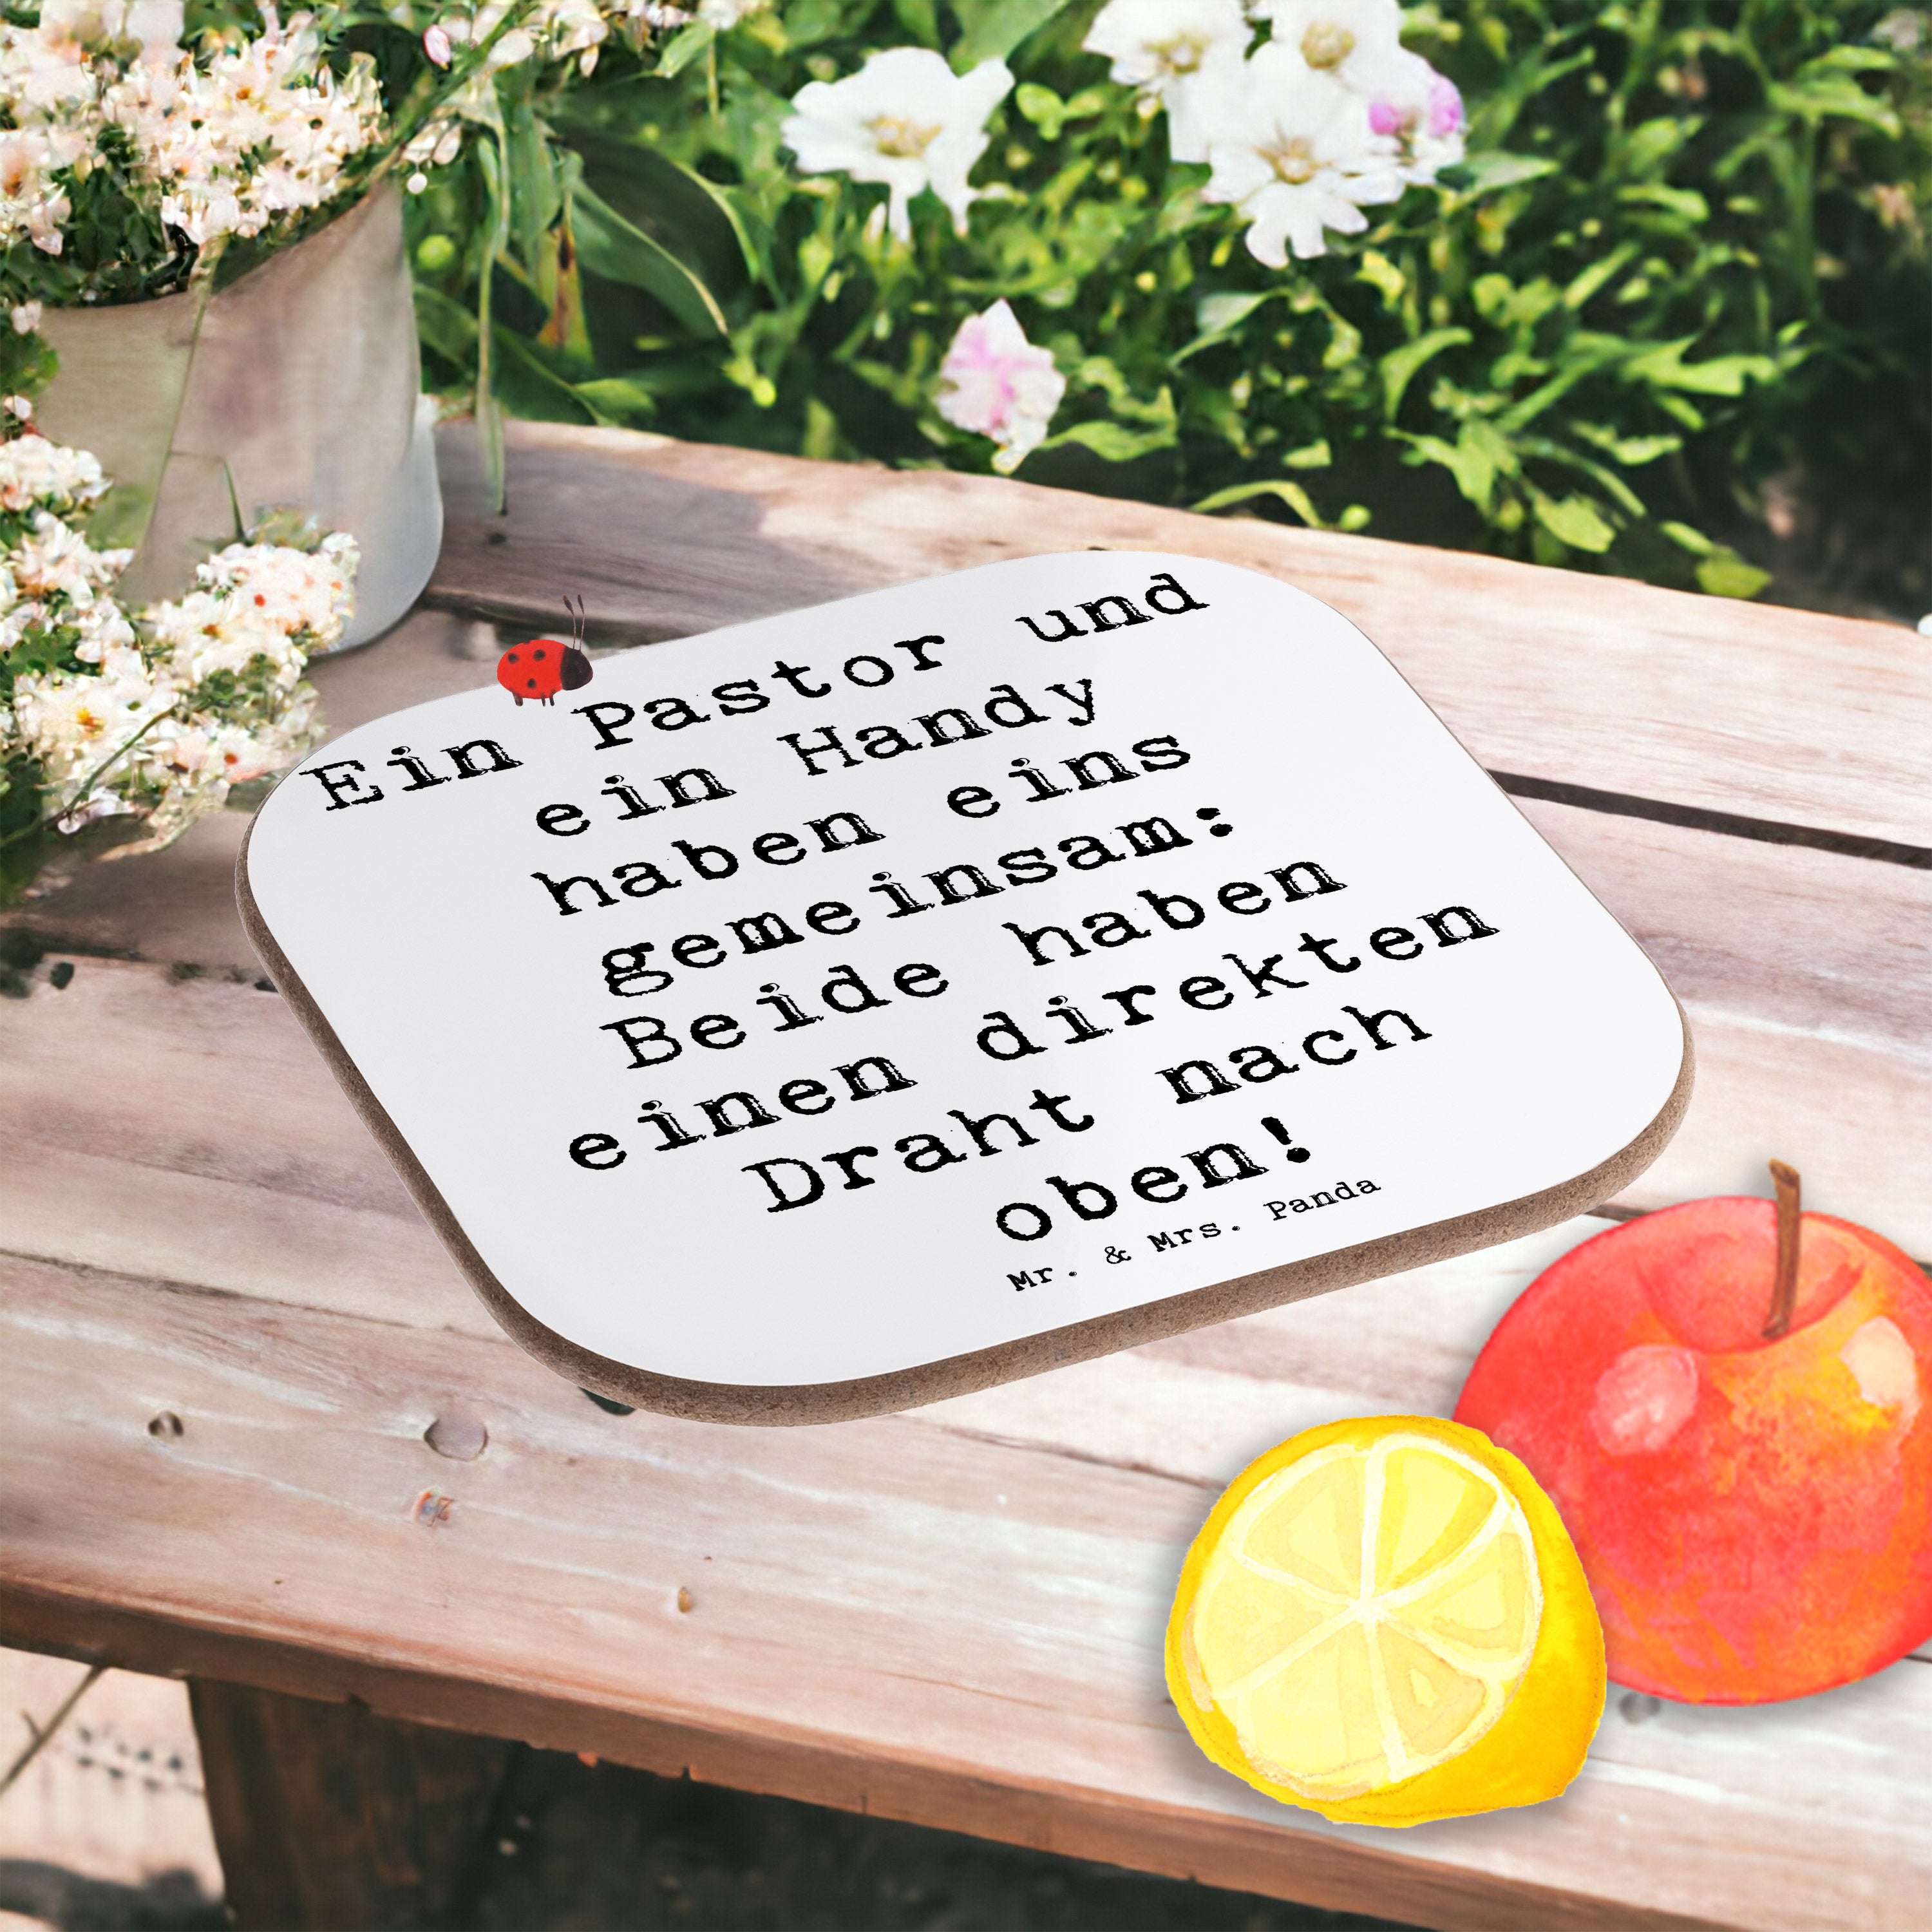 Ein Pastor und
ein Handy
haben eins
gemeinsam:
Beide haben
einen direkten
Draht nach
oben!
Mr. & Mrs. Panda